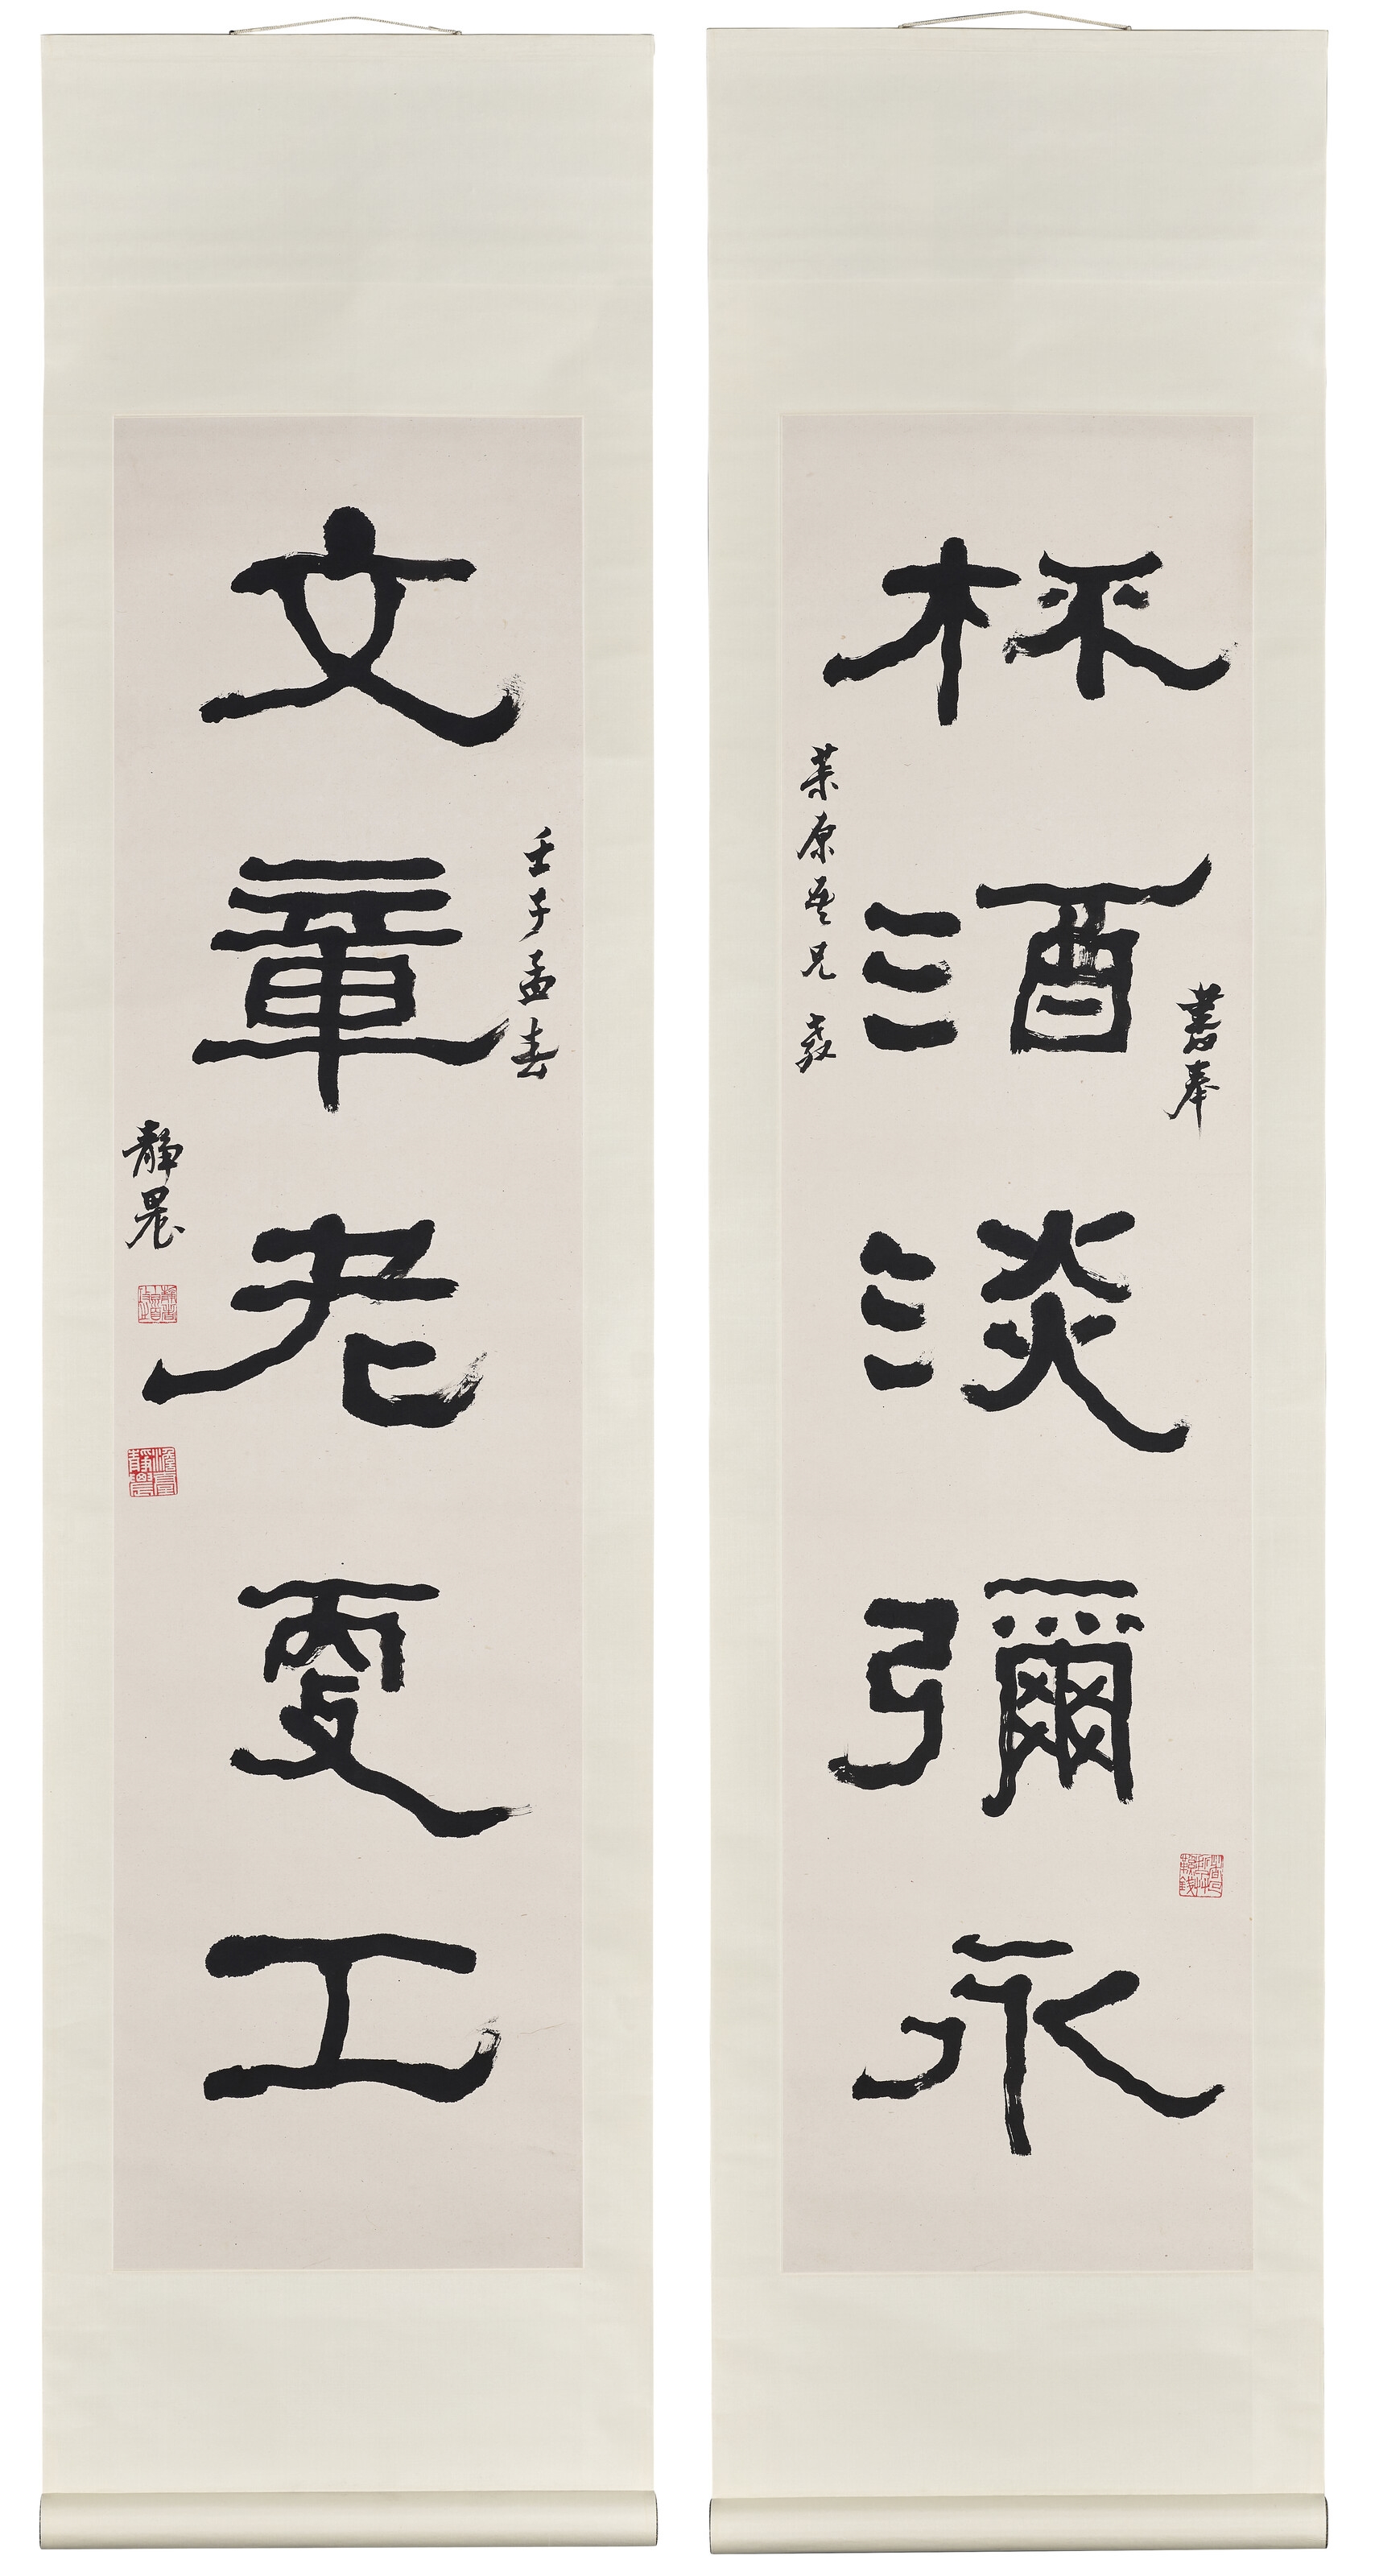 書奉
杯酒淡彌永
原吾兄教
壬子孟春
文章老更工
靜農